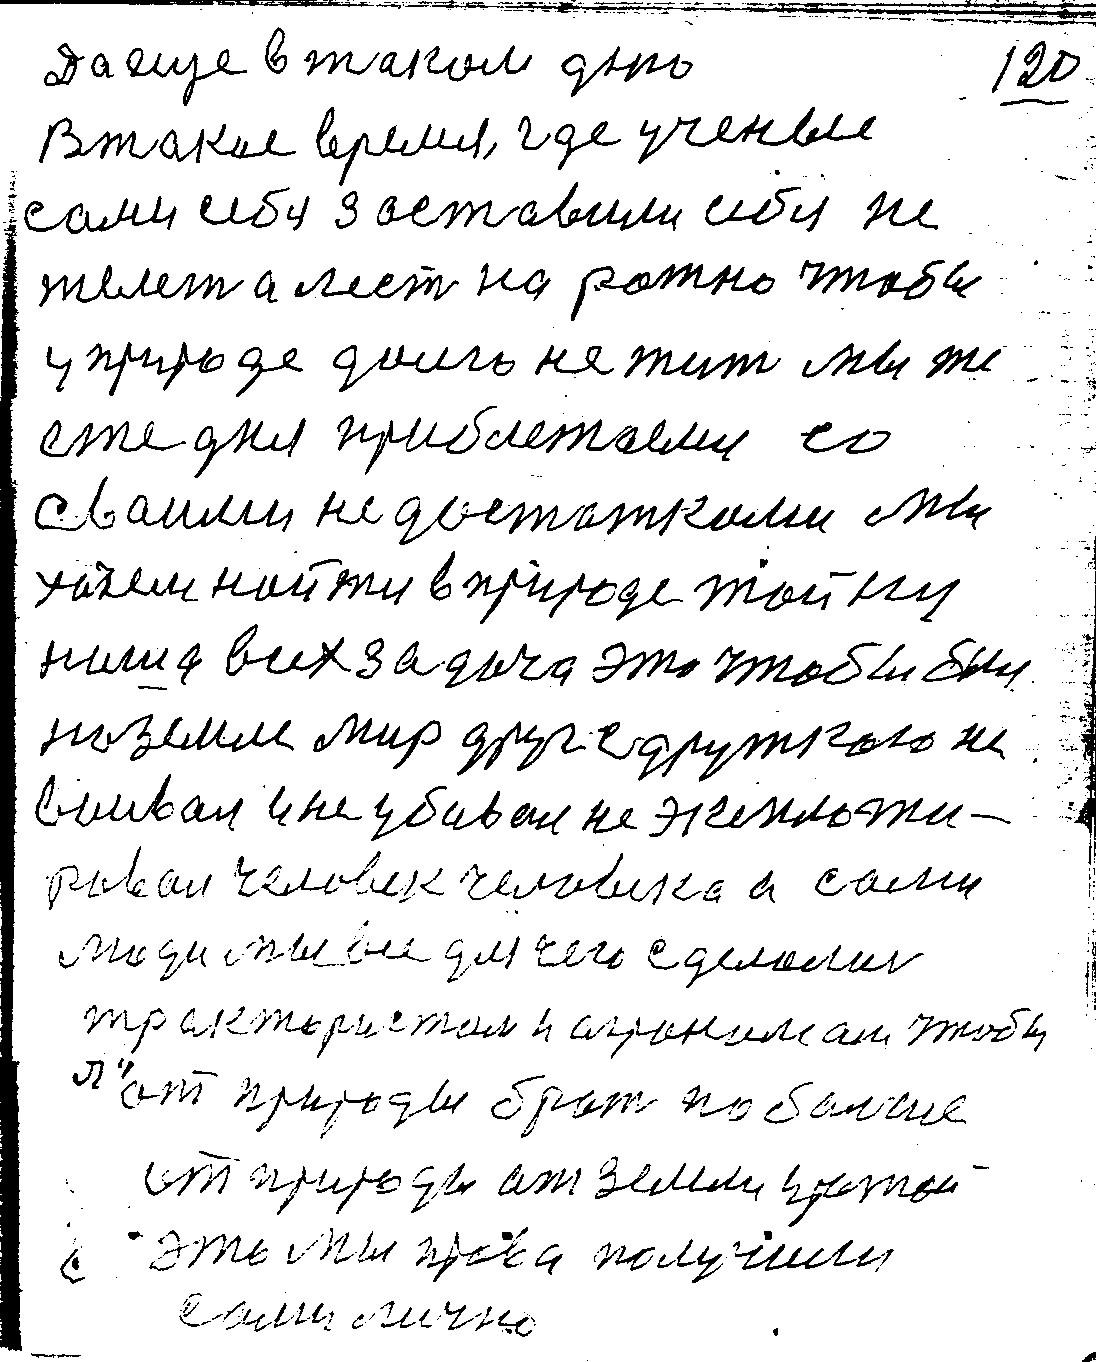 Да еще в таком дню 120
В такое время, где ученые
сами себя заставили себя не
желет а лест на ражно чтобы
у природе долго не жит мы же
сте дня приблетаеми со
сваими недостатками мы
хочем найти в природе тайну
наша всех задача это чтобы бы
на земле мир друг с дружкою не
воивал и не убивал не эксплоти-
ровал человек человека а сами
люди мы все для чего сделались
трактористам и агрономам чтобы
от природы брат побалше
от природы ат земли
это мы права получили
сами лично